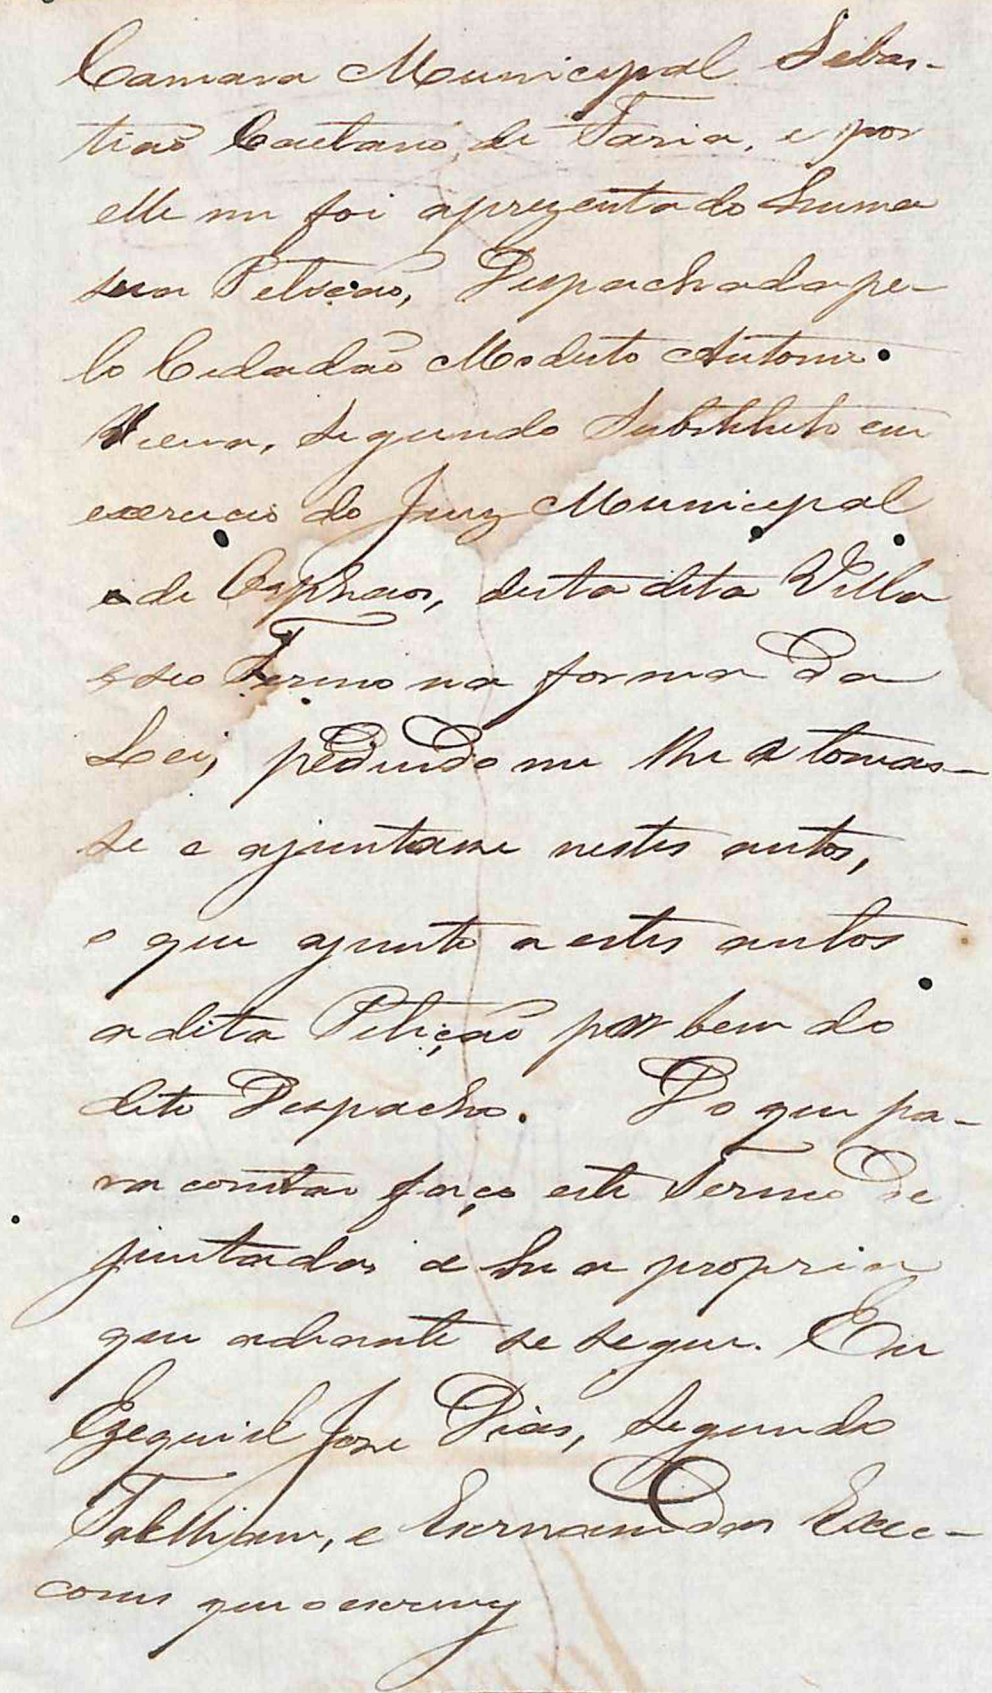 Camara Municipal Sebas-
tiaõ Caetano, de Faria, e por
elle me foi aprezentado huma
sua Petiçaõ, Despachada pe-
lo Cidadaõ Modesto Antonio
Vieira, segundo Substituto em
exercicio do Juiz Municipal
e de Orphaos, desta dita Villa
e seo Termo na forma da
Lei, pedindo me lhe a tomas-
se e ajuntasse nestes autos,
o que ajunto a estes autos
a dita Petiçaõ por bem do
dito Despacho. Do que pa-
ra constar faço este Termo de
juntada, e hé a propria
que adeante se segue. Eu
Ezequiel Jose Dias, segundo
Tabelliam, e Escrivam das Exce-
coens que o escrevy